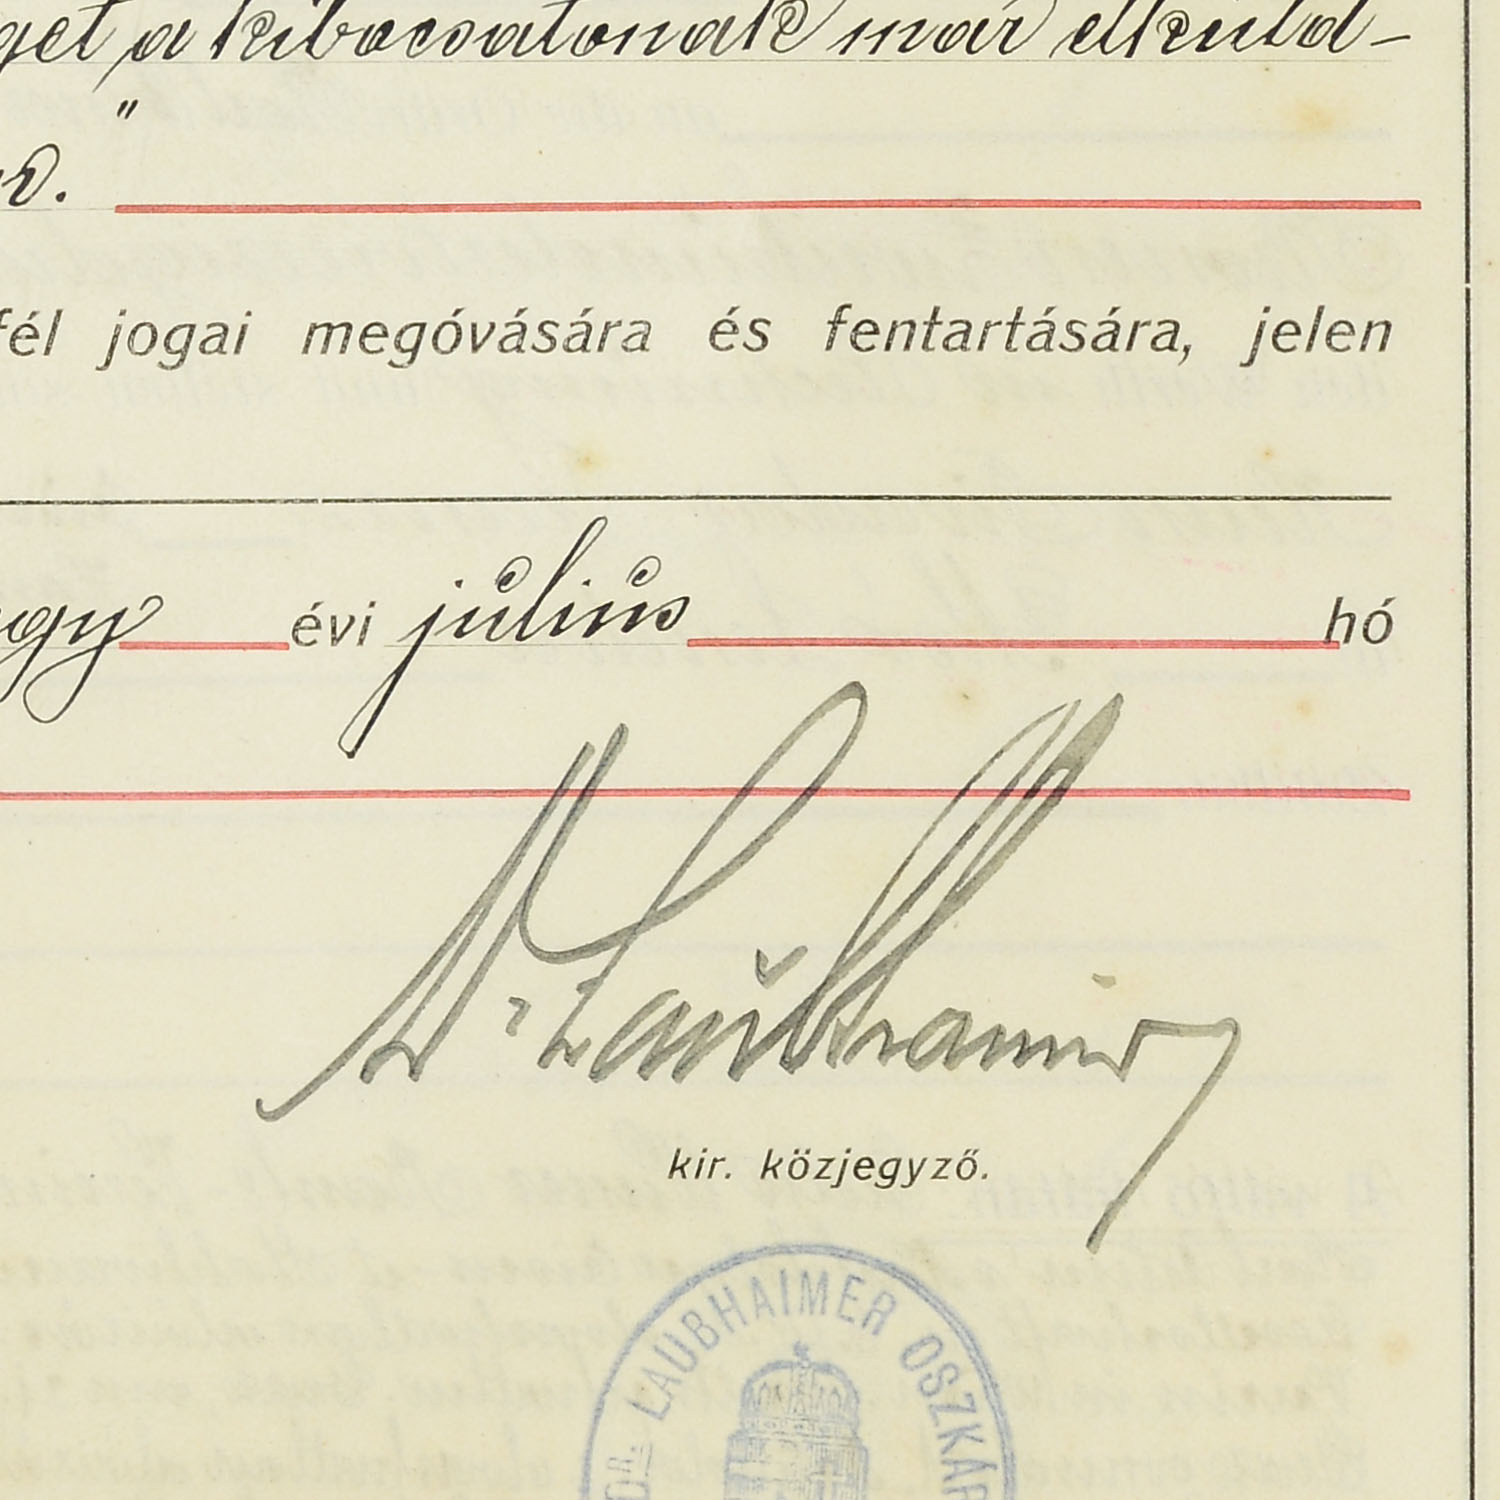 a kibocsátónak már elküld-
fél jogai megóvására és fentartására, jelen
évi július hó
Dr. Laubhaimer
kir. közjegyző.
DR. LAUBHAIMER OSZKÁR